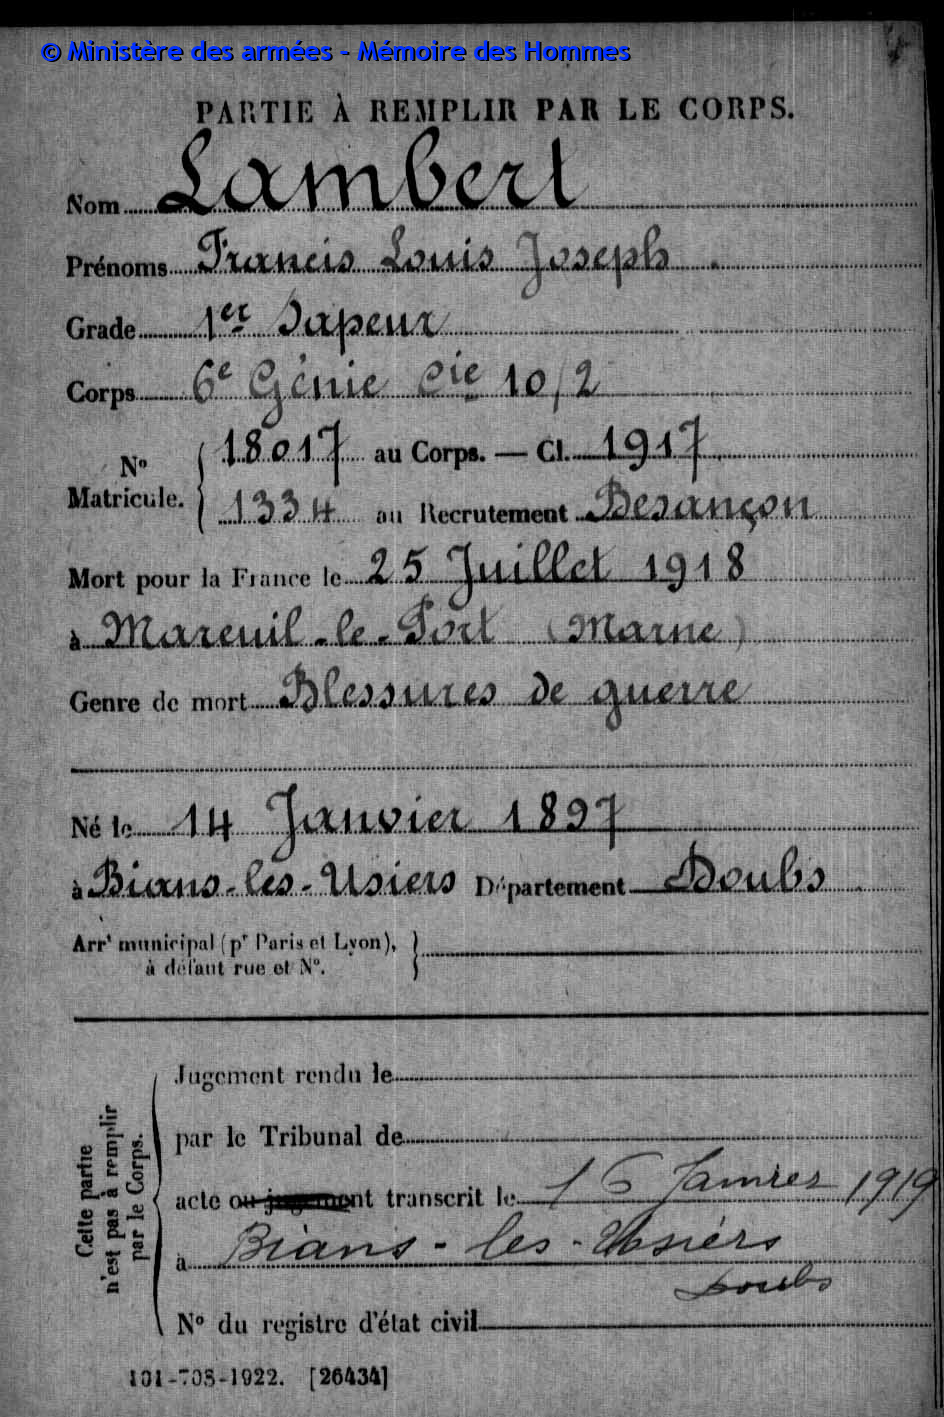 © Ministère des armées - Mémoire des Hommes
PARTIE À REMPLIR PAR LE CORPS.
Nom Lambert
Prénoms Francis Louis Joseph
Grade 1er Sapeur
Corps 6e Génie Cie 10/2
N° Matricule. { 18017 au Corps. — Cl. 1917
1334 au Recrutement Besançon
Mort pour la France le 25 Juillet 1918
à Mareuil-le-Port (Marne)
Genre de mort Blessures de guerre
Né le 14 Janvier 1897
à Bians-les-Usiers Département Doubs
Arrt municipal (pr Paris et Lyon), }
à défaut rue et N°.
Cette partie
n'est pas à remplir
par le Corps.
Jugement rendu le
par le Tribunal de
acte ou jugement transcrit le 16 Janvier 1919
à Bians-les-Usiers
Doubs
N° du registre d'état civil
101-708-1922. [26434]